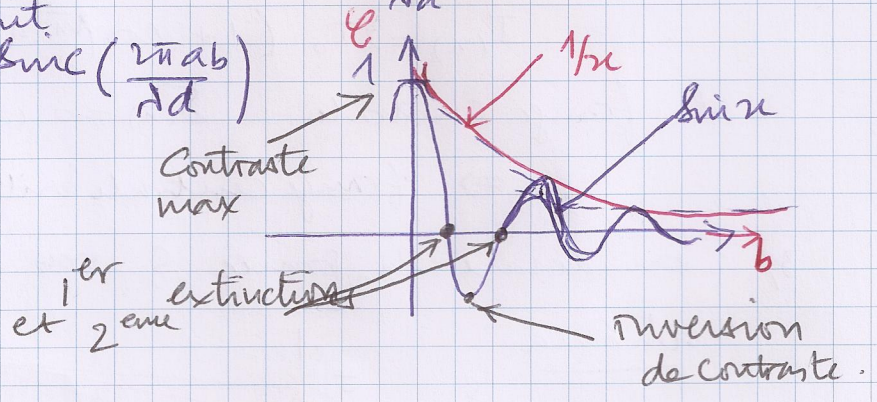 ut
sinc (2πab / λd)
C
1
1/x
sin x
Contraste
max
b
1er
et 2eme extinctions
inversion
de contraste.